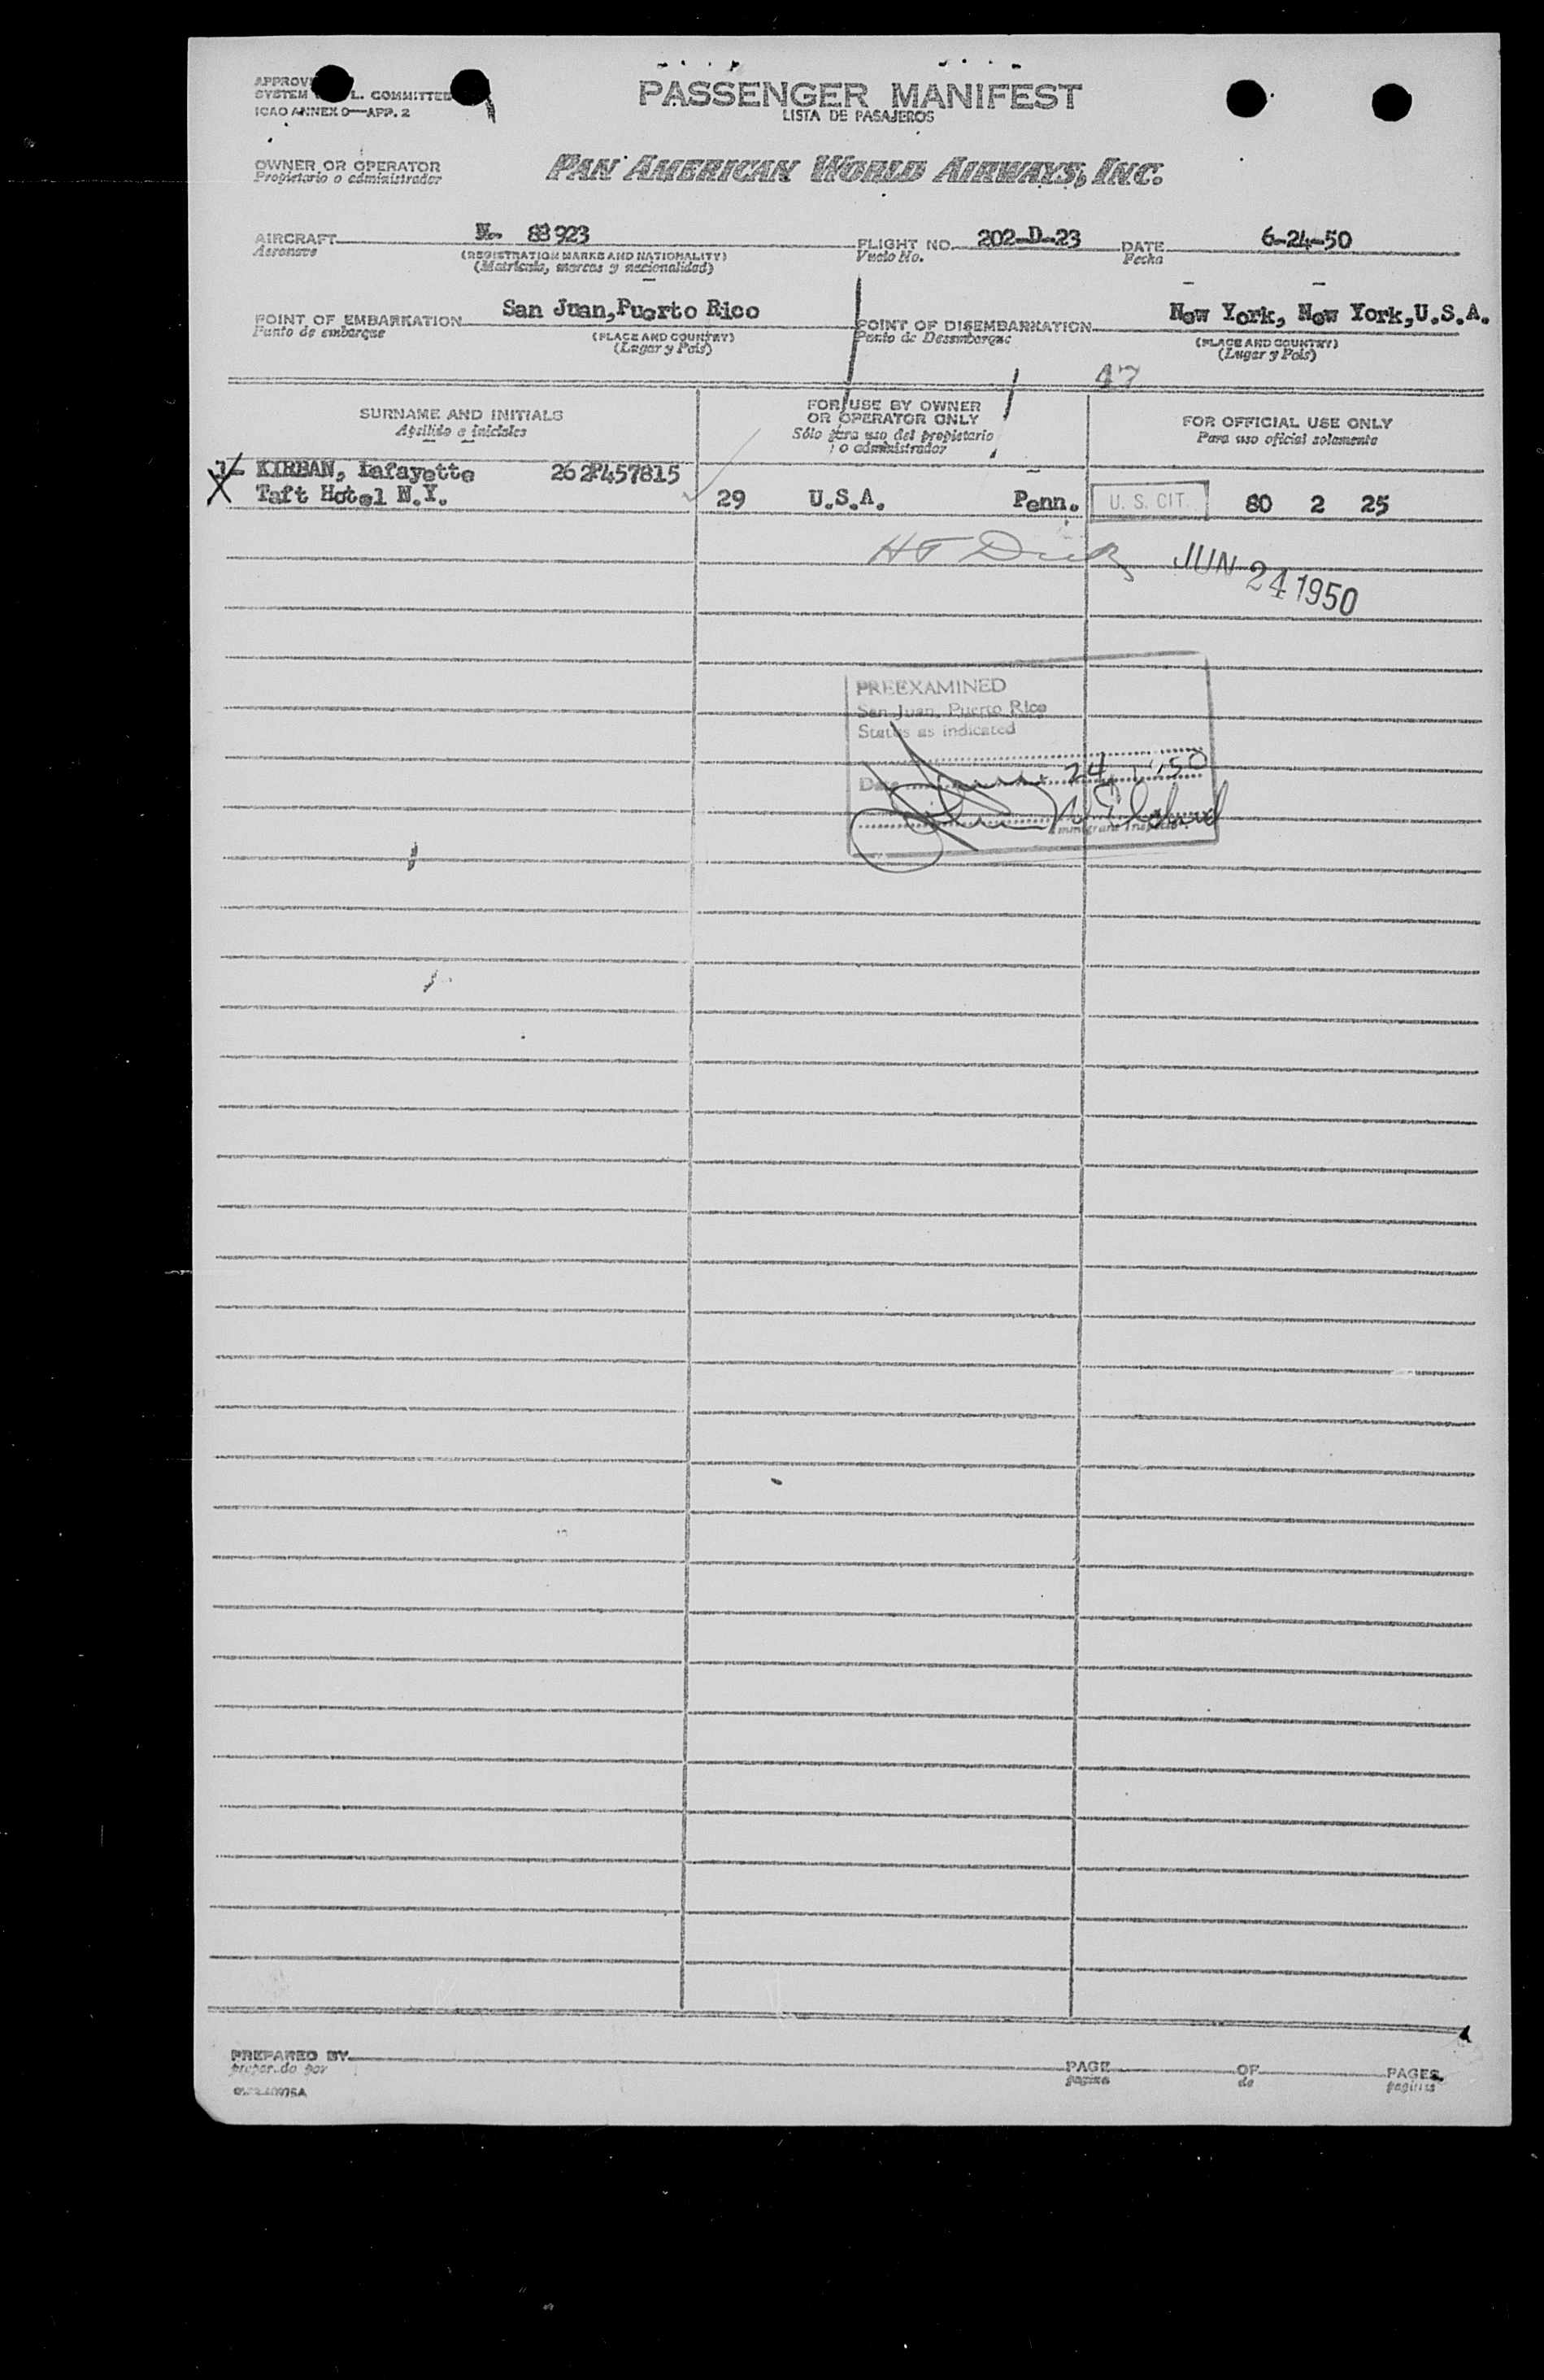 PASSENGER MANIFEST
LISTA DE PASAJEROS
SYSTEM L. COMMITTEE
ICAO ANNEX 9—APP. 2
OWNER OR OPERATOR
Propietario o administrador
PAN AMERICAN WORLD AIRWAYS, INC.
AIRCRAFT N- 88923 FLIGHT NO. 202-D-23 DATE 6-24-50
Aeronave (REGISTRATION MARKS AND NATIONALITY) Vuelo No. Fecha
(Matricula, marcas y nacionalidad)
POINT OF EMBARKATION San Juan,Puerto Rico POINT OF DISEMBARKATION New York, New York,U.S.A.
Punto de embarque (PLACE AND COUNTRY) Punto de Desembarque (PLACE AND COUNTRY)
(Lugar y Pais) (Lugar y Pais)
47
SURNAME AND INITIALS FOR USE BY OWNER OR OPERATOR ONLY FOR OFFICIAL USE ONLY
Apellido e iniciales Sólo para uso del propietario o administrador Para uso oficial solamente
1- KIRBAN, Lafayette 262P457815
Taft Hotel N.Y. 29 U.S.A. Penn. U. S. CIT. 80 2 25
JUN 24 1950
PREEXAMINED
San Juan, Puerto Rico
Status as indicated
Date 24 50
Immigrant Inspector
PREPARED BY PAGE OF PAGES
preparado por pagina de paginas